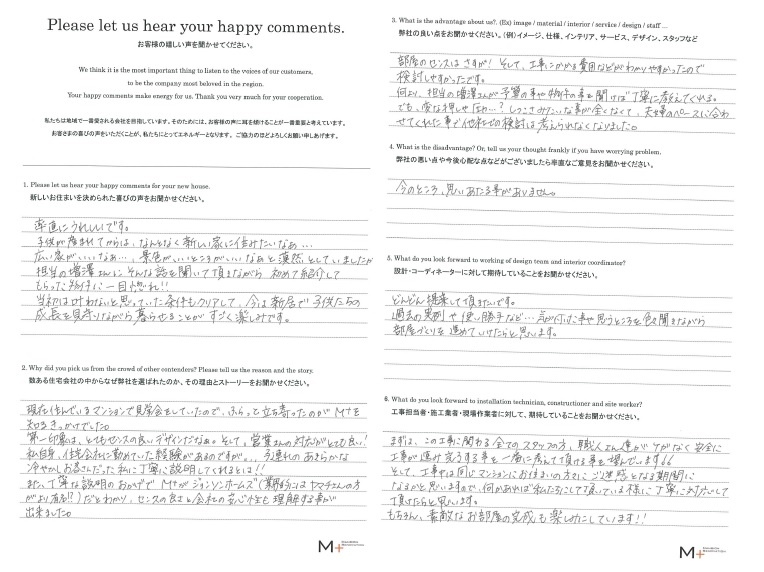 Please let us hear your happy comments.
お客様の嬉しい声を聞かせてください。
We think it is the most important thing to listen to the voices of our customers,
to be the company most beloved in the region.
Your happy comments make energy for us. Thank you very much for your cooperation.
私たちは地域で一番愛される会社を目指しています。そのためには、お客様の声に耳を傾けることが一番重要と考えています。
お客さまの喜びの声をいただくことが、私たちにとってエネルギーとなります。ご協力のほどよろしくお願い申しあげます。
1. Please let us hear your happy comments for your new house.
新しいお住まいを決められた喜びの声をお聞かせください。
率直にうれしいです。
子供が産まれてからは、なんとなく新しい家に住みたいなぁ…
広い家がいいなぁ…、景色がいいところがいいなぁと漠然としていましたが
担当の増澤さんにそんな話を聞いて頂きながら 初めて紹介して
もらった物件に一目惚れ!!
当初は叶わないと思っていた条件もクリアして、今は新居で子供たちの
成長を見守りながら暮らせることが すごく楽しみです。
2. Why did you pick us from the crowd of other contenders? Please tell us the reason and the story.
数ある住宅会社の中からなぜ弊社を選ばれたのか、その理由とストーリーをお聞かせください。
現在住んでいるマンションで見学会をしていたので、ふらっと立ち寄ったのがM+を
知るきっかけでした
第一印象は、とてもセンスの良いデザインだなぁ。そして、営業さんの対応がとても良い!
私自身、住宅会社に勤めていた経験があるのですが、、子連れのあきらかな
冷やかしお客さんだった私に丁寧に説明してくれるとは!!
また、丁寧な説明のおかげで M+がジョンソンホームズ(期的にはヤマチさんの方
がより有名!!)だとわかり、センスの良さと会社の安心性も理解する事が
出来ました。
3. What is the advantage about us?. (Ex) image / material / interior / service / design / staff ...
弊社の良い点をお聞かせください。(例)イメージ、仕様、インテリア、サービス、デザイン、スタッフなど
部屋のセンスはさすが! そして、工事にかかる費用などがわかりやすかったので
検討しやすかったです。
何より、担当の増澤さんが予算の事や物件の事を聞けば丁寧に教えてくれる。
でも、変な押しせ感…?しつこさみたいな事が全くなくて、夫婦のペースに合わ
せてくれた事で他社での検討は考えられなくなりました。
4. What is the disadvantage? Or, tell us your thought frankly if you have worrying problem.
弊社の悪い点や今後心配な点などがございましたら率直なご意見をお聞かせください。
今のところ、思いあたる事がありません。
5. What do you look forward to working of design team and interior coordinator?
設計・コーディネーターに対して期待していることをお聞かせください。
どんどん提案して頂きたいです。
過去の実例や使い勝手など…気が付いた事や思うところを色々聞きながら
部屋づくりを進めていけたらと思います。
6. What do you look forward to installation technician, constructioner and site worker?
工事担当者・施工業者・現場作業者に対して、期待していることをお聞かせください。
まずは、この工事に関わる全てのスタッフの方、職人さん達がケガがなく安全に
工事が進み完了する事を一番に考えて頂ける事を望んでいます
そして、工事中は同じマンションにお住まいの方々にご迷惑となる期間に
なるかと思いますので、何かあれば私たちにして頂いている様に丁寧に対応して
頂けたらと思います。
もちろん、素敵なお部屋の完成も楽しみにしています!!
M+
M+